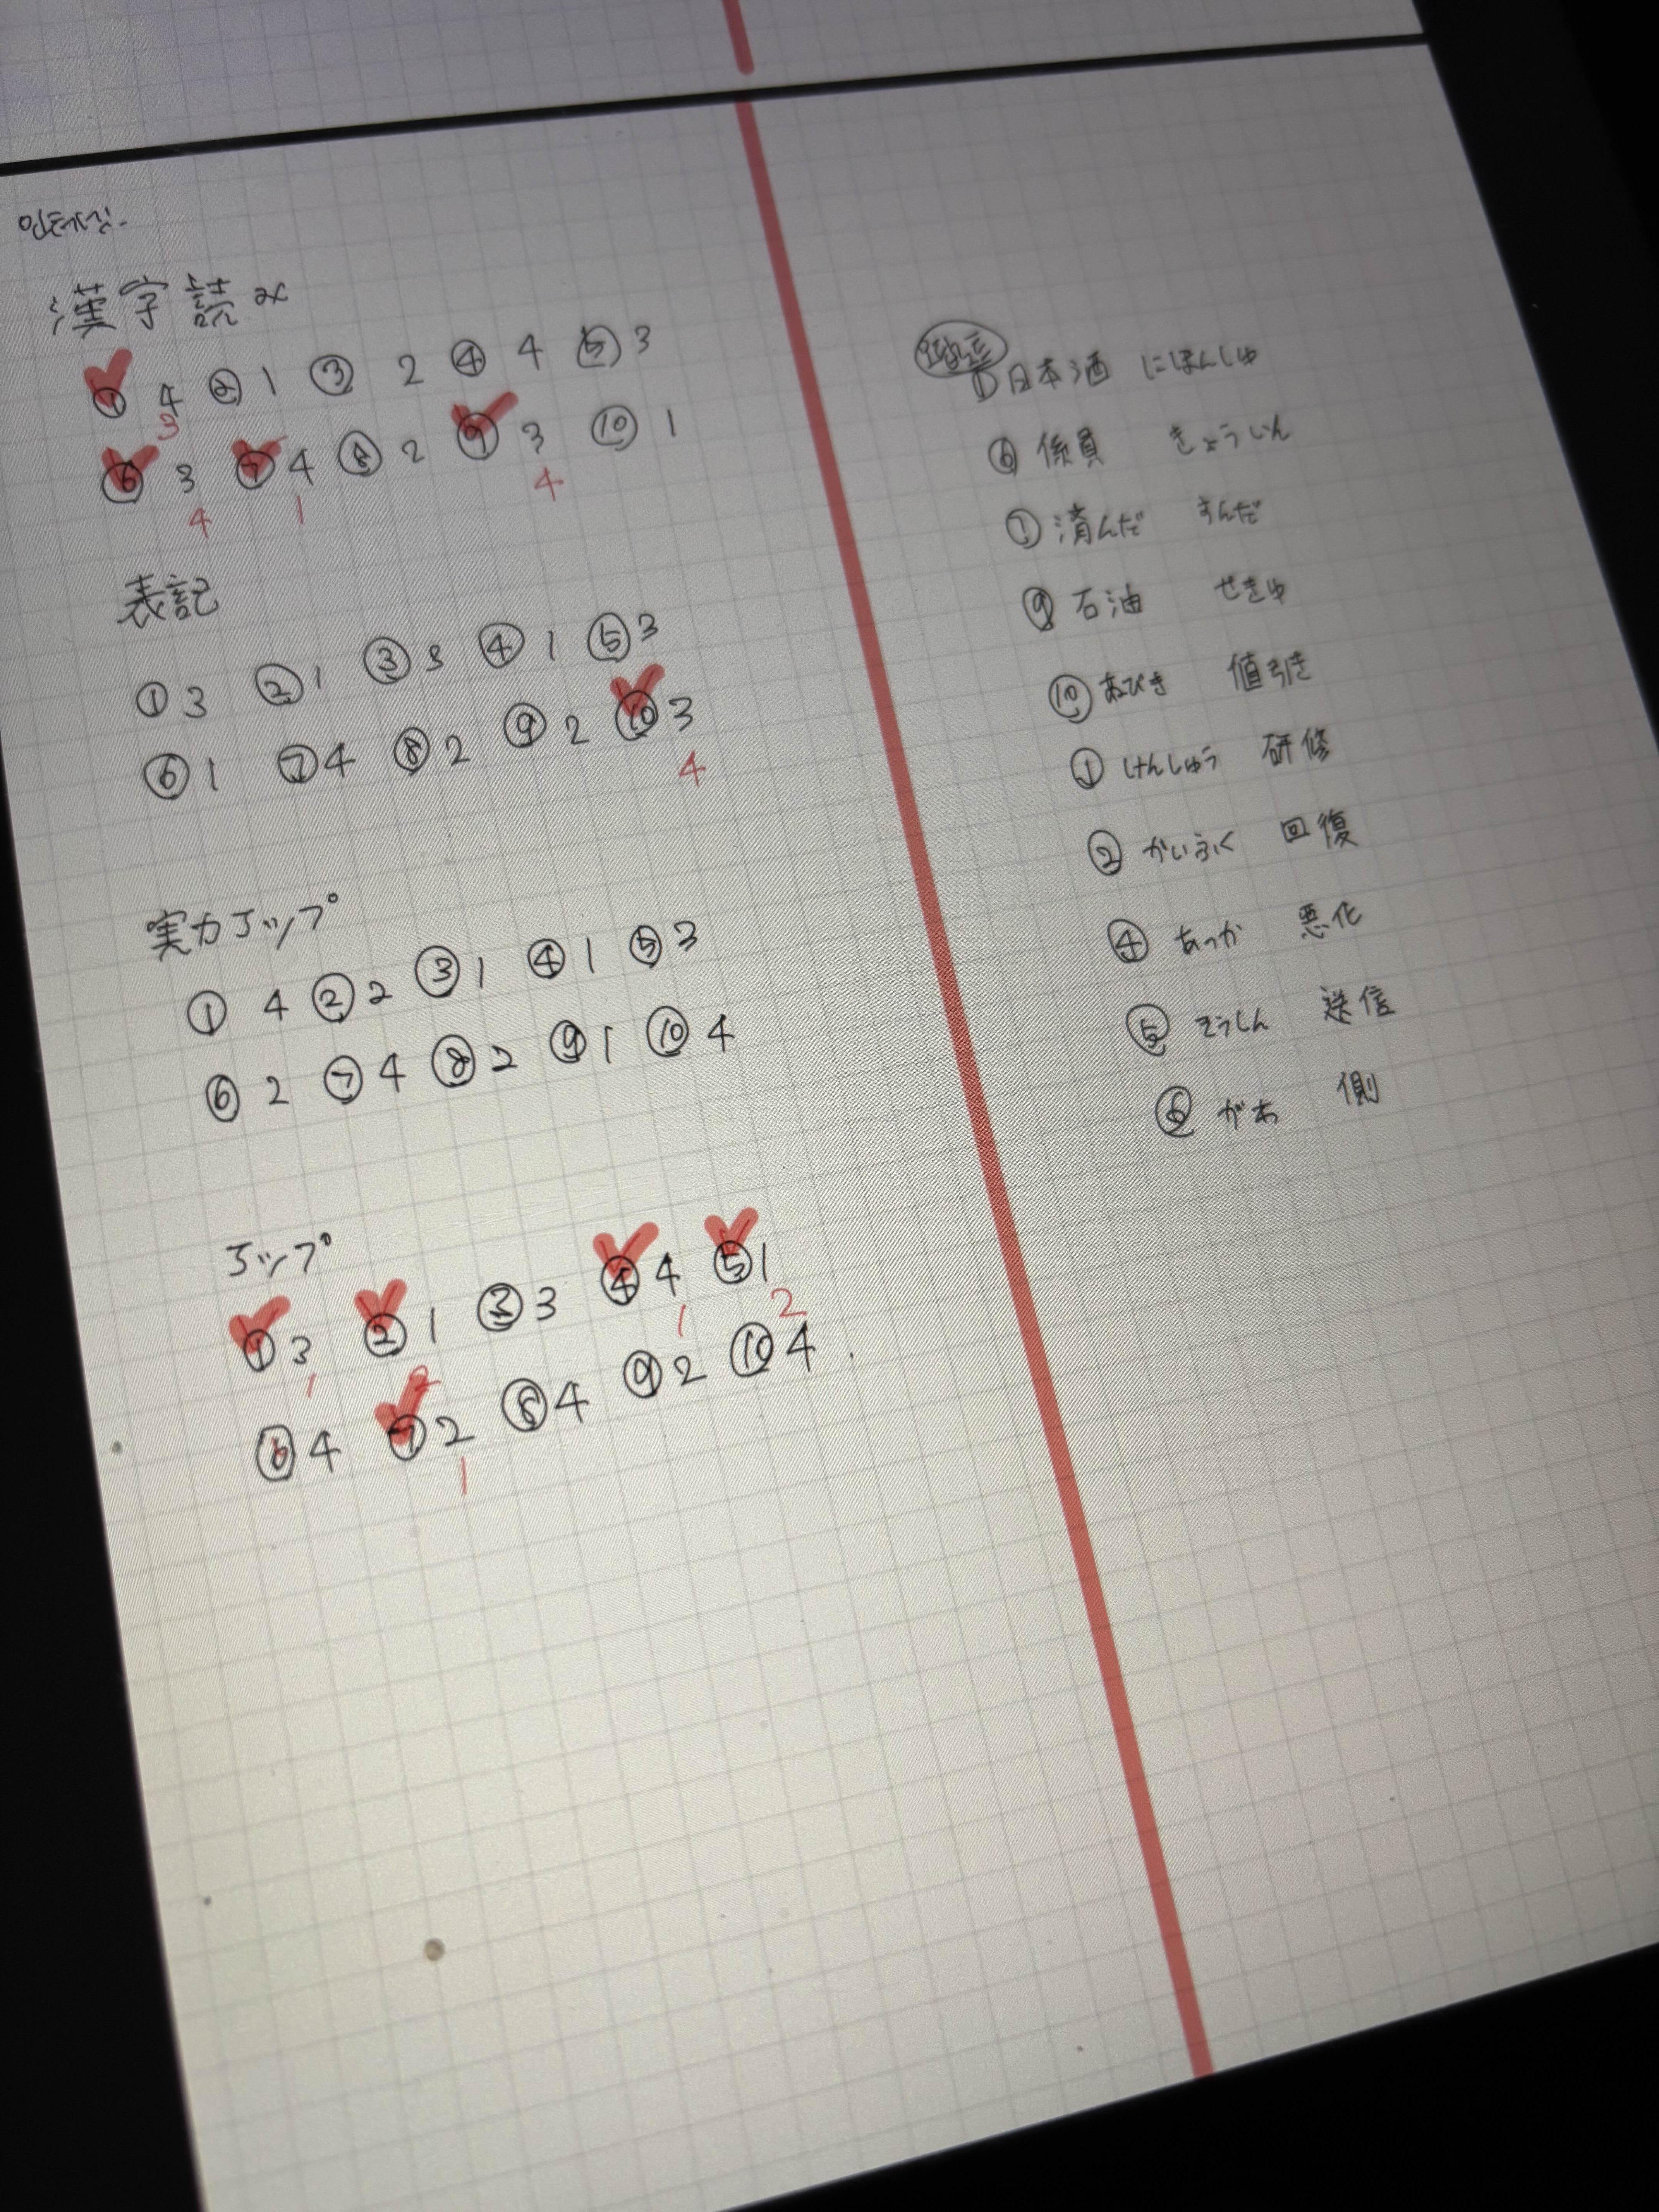 漢字読み
① 4 ② 1 ③ 2 ④ 4 ⑤ 3
3
⑥ 3 ⑦ 4 ⑧ 2 ⑨ 3 ⑩ 1
4 1 4
表記
① 3 ② 1 ③ 3 ④ 1 ⑤ 3
⑥ 1 ⑦ 4 ⑧ 2 ⑨ 2 ⑩ 3
4
実力アップ
① 4 ② 2 ③ 1 ④ 1 ⑤ 3
⑥ 2 ⑦ 4 ⑧ 2 ⑨ 1 ⑩ 4
アップ
① 3 ② 1 ③ 3 ④ 4 ⑤ 1
1 2 1 2
⑥ 4 ⑦ 2 ⑧ 4 ⑨ 2 ⑩ 4.
1
① 日本酒 にほんしゅ
⑥ 係員 きょういん
⑦ 済んだ すんだ
⑨ 石油 せきゆ
⑩ ねびき 値引き
① けんしゅう 研修
② かいふく 回復
④ あっか 悪化
⑤ そうしん 送信
⑥ がわ 側